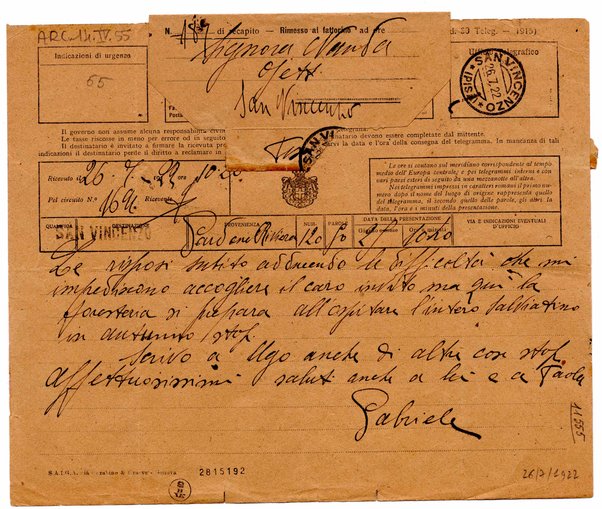 ARC. 14. IV. 55
N. 189 di recapito - Rimesso al fattorino ad ore
d. 30 Teleg. - 1915)
Indicazioni di urgenza
65
Signora Nanda
Ojetti
San Vincenzo
Ufficio Telegrafico
SAN VINCENZO
26.7.22
(PISA)
Il governo non assume alcuna responsabilità civile
Le tasse riscosse in meno per errore od in seguito
Il destinatario è invitato a firmare la ricevuta
il destinatario perde il diritto a reclamare in
telegramma.
destinatario devono essere completate dal mittente.
la data e l'ora della consegna del telegramma. In mancanza di tali
SAN VI
Ricevuto il 26. 7. 22 ore
Pel circuito N.° Ricevente
Le ore si contano sul meridiano corrispondente al tempo
medio dell'Europa centrale; e pei telegrammi interni e con
vari paesi esteri di seguito da una mezzanotte all'altra.
Nei telegrammi impressi in caratteri romani il primo numero
dopo il nome del luogo di origine rappresenta quello del
telegramma, il secondo quello delle parole, gli altri
la data, l'ora e i minuti della presentazione.
QUALIFICA DESTINAZIONE PROVENIENZA NUM. PAROLE DATA DELLA PRESENTAZIONE VIA E INDICAZIONI EVENTUALI D'UFFICIO
Giorno e mese Ore e minuti
SAN VINCENZO Gardone Riviera 120
Le risposi subito adducendo le difficoltà che mi
impediscono accogliere il caro invito ma qui la
foresteria si prepara all ospitare l'intero Salviatino
in autunno stop
Scrivo a Ugo anche di altre cose stop
affettuosissimi saluti anche a lei e a Paola
Gabriele
11555
2815192
26/7/1922